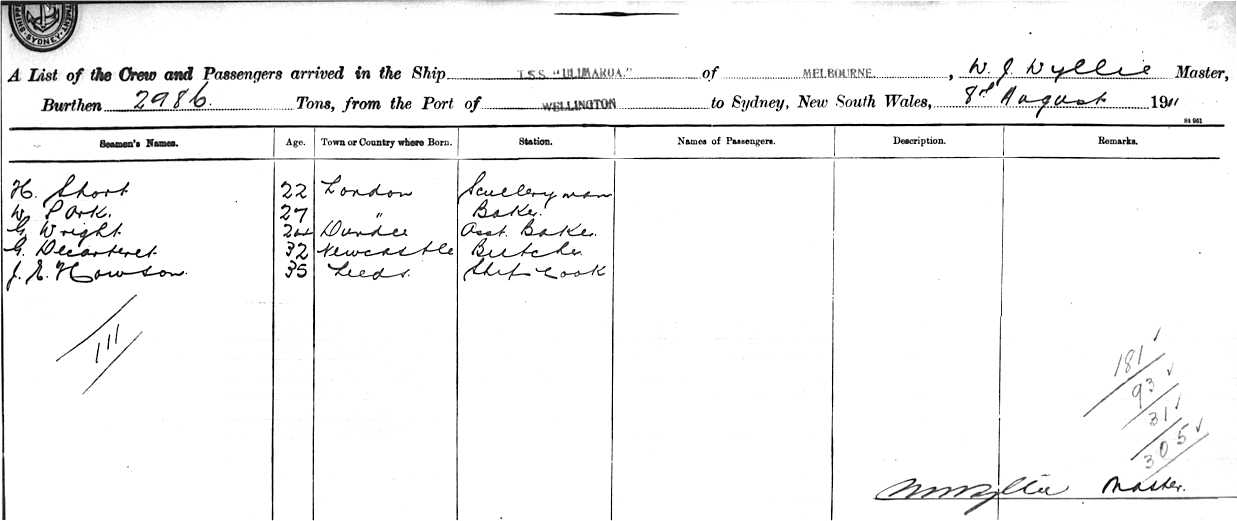 SYDNEY
A List of the Crew and Passengers arrived in the Ship T.S.S. "ULIMAROA." of MELBOURNE, W. J. Wyllie Master,
Burthen 2986. Tons, from the Port of WELLINGTON to Sydney, New South Wales, 8th August 1911
Seamen's Names. Age. Town or Country where Born. Station. Names of Passengers. Description. Remarks.
H. Short 22 London Scullery man
W. Park. 27 " Baker.
G. Wright. 24 Dundee Asst. Baker.
G. Decarteret. 32 Newcastle Butcher
J. E. Howson. 35 Leeds. Ships Cook
111
181 ✓
93 ✓
31 ✓
305 ✓
Master.